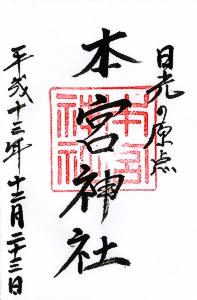 日光の原点
本宮神社
平成十三年十二月二十三日